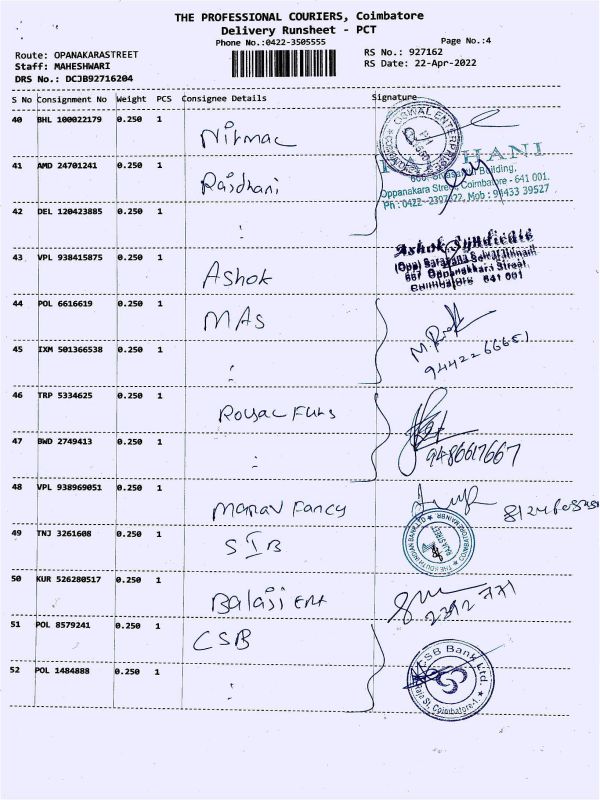 THE PROFESSIONAL COURIERS, Coimbatore
Delivery Runsheet - PCT
Phone No.:0422-3505555
Page No.:4
Route: OPANAKARASTREET
RS No.: 927162
Staff: MAHESHWARI
RS Date: 22-Apr-2022
DRS No.: DCJB92716204
S No Consignment No Weight PCS Consignee Details Signature
40 BHL 100022179 0.250 1 Nirmac
OSWAL ENTERPRISE
41 AMD 24701241 0.250 1 Rajdhani
HANI
Building,
Oppanakara Street, Coimbatore - 641 001.
Ph : 0422 - 2397322, Mob : 94433 39527
42 DEL 120423885 0.250 1 :
43 VPL 938415875 0.250 1 Ashok
Ashok Syndicate
667 Oppanakkara Street,
Coimbatore 641 001
44 POL 6616619 0.250 1 MAS
9442266651
45 IXM 501366538 0.250 1 :
46 TRP 5334625 0.250 1 Royac Furs
9486617667
47 BWD 2749413 0.250 1 :
48 VPL 938969051 0.250 1 Manav Fancy
49 TNJ 3261608 0.250 1 SIB
THE SOUTH INDIAN BANK LTD
50 KUR 526280517 0.250 1 Balaji Ent
51 POL 8579241 0.250 1 CSB
CSB Bank Ltd.
Raja St. Coimbatore-1.
52 POL 1484888 0.250 1 :